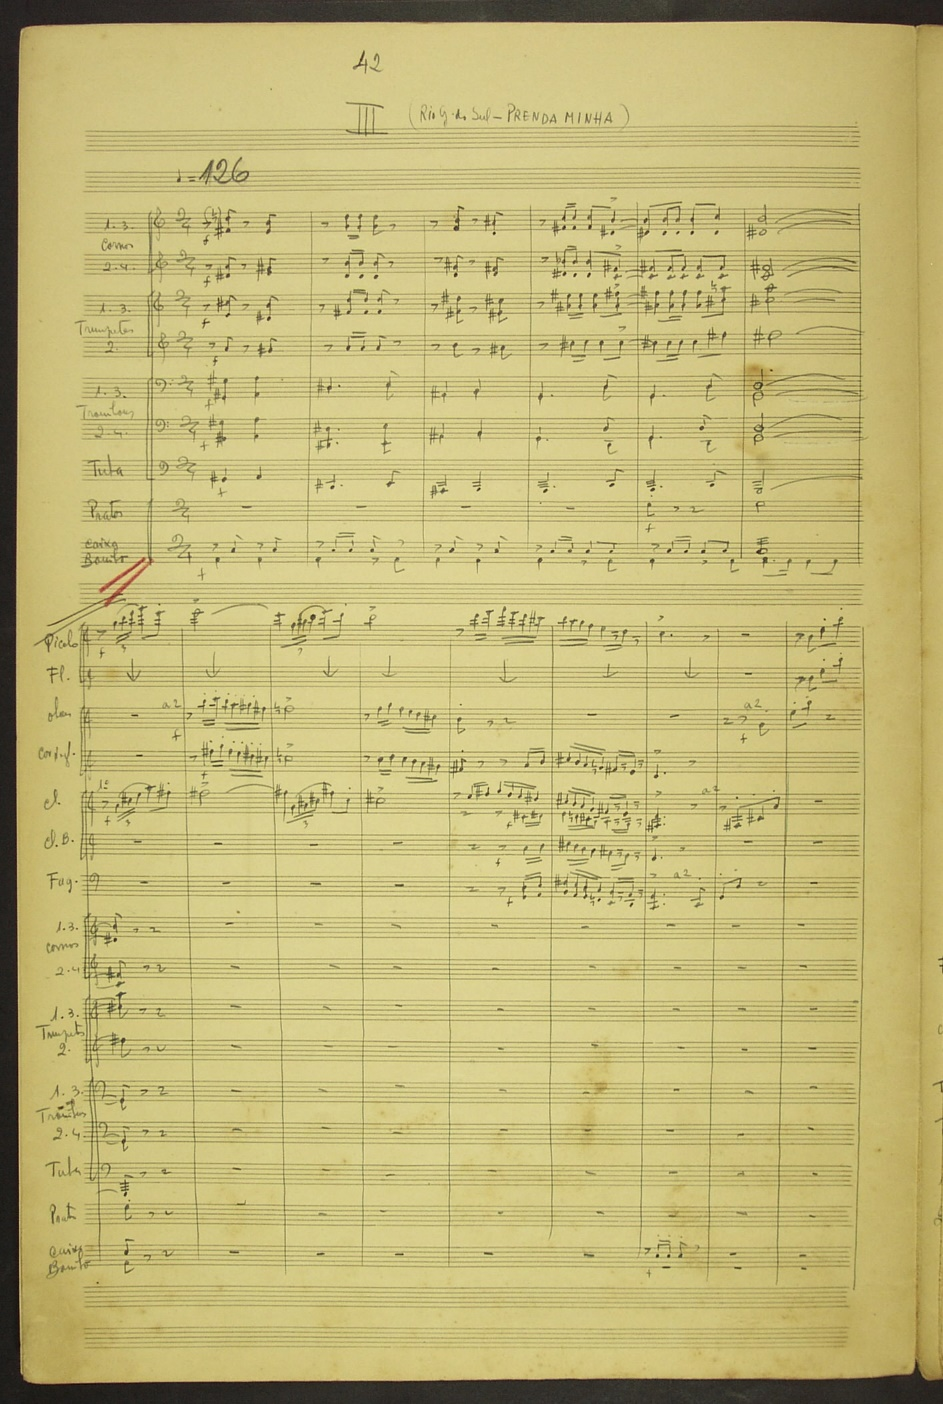 42
III (Rio G. do Sul - PRENDA MINHA)
♩ = 126
1. 3.
Cornos
2. 4.
1. 3.
Trumpetes
2.
1. 3.
Trombones
2. 4.
Tuba
Pratos
Caixa
Bombo
Picolo
Fl.
oboes
a2
a2
cor i.
cl.
1º
a2
cl. B.
Fag.
a2.
1. 3.
cornos
2. 4
1. 3.
Trumpets
2.
1. 3.
Trombones
2. 4
Tuba
Prato
caixa
Bombo